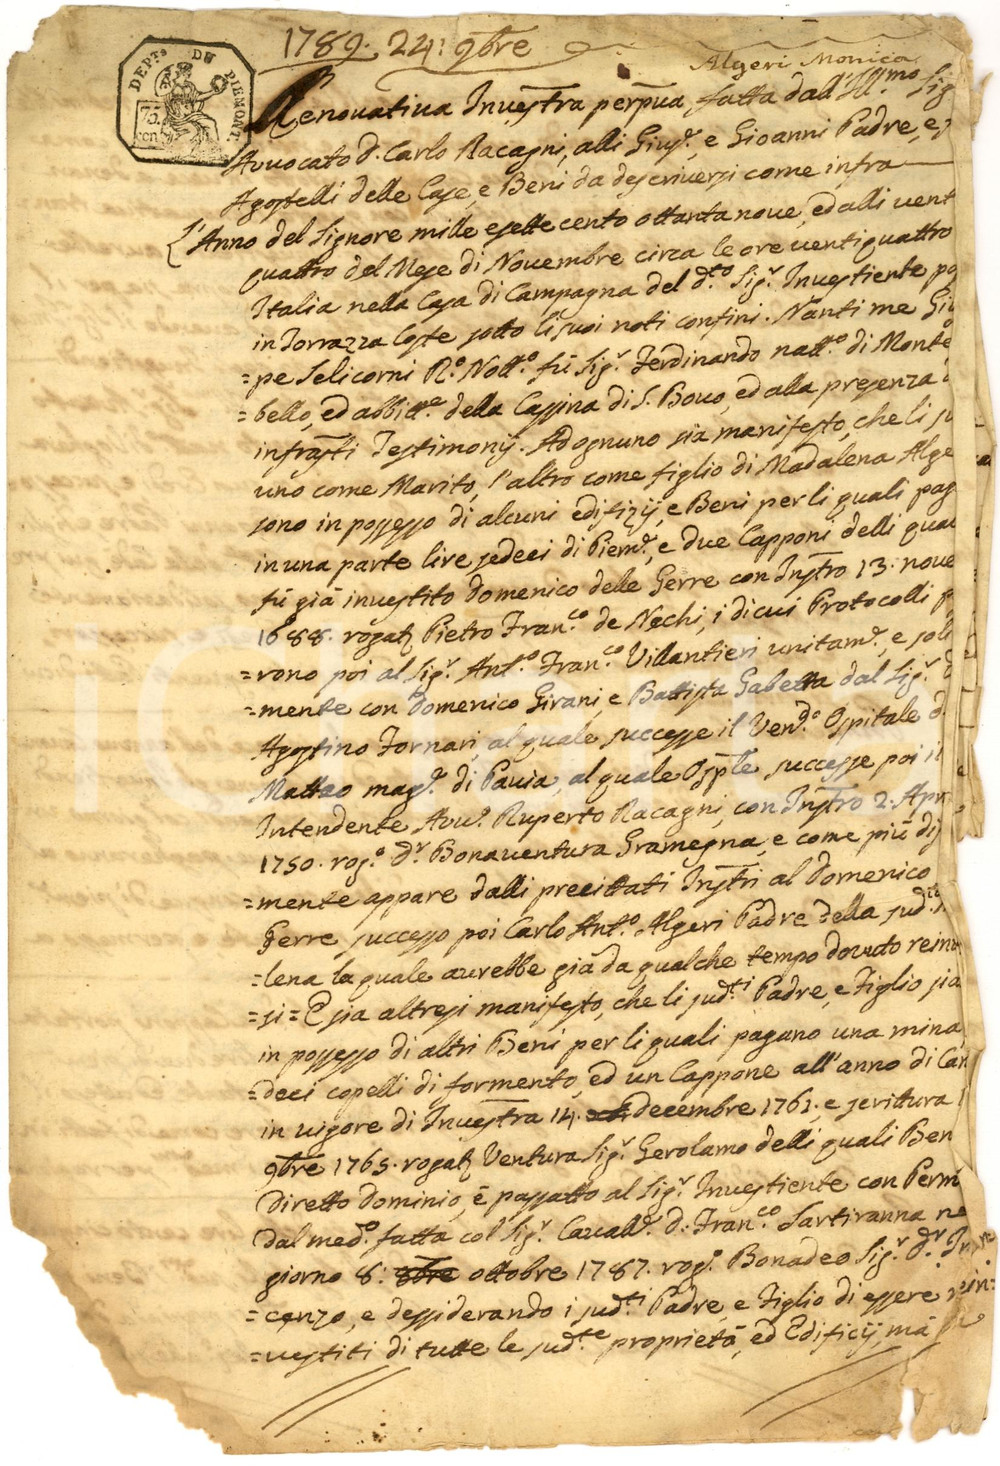 1789. 24: 9bre
Algeri Monica
DEPt. DU PIEMONT.
Renovativa Investra perpua, fatta dall'Ill.mo Sig
Avvocato d. Carlo Racagni, alli Giuse, e Gioanni Padre, e
Agostelli delle Case, e Beni da descriversi come infra
L'Anno del Signore mille e sette cento ottanta nove, ed alli vent
quattro del Mese di Novembre circa le ore ventiquattro
Italia nella Casa di Campagna del d.to Sig.r Investiente
in Torrazza Coste sotto li suoi noti confini. Nanti me Giu
=pe Selicorni R.o Nott.o fù Sig.r Ferdinando natt.o di Monte
=bello, ed abbitt.e della Cassina di S. Bovo, ed alla presenza
infrasti Testimonij. Ad ognuno sia manifesto, che li
uno come Marito, l'altro come figlio di Madalena Alge
sono in possesso di alcuni edifizij, e Beni per li quali pag
in una parte lire sedeci di Piem.e, e due Capponi delli qua
fù già investito Domenico delle Gerre con Instro 13. nove
1688. rogat Pietro Fran.co de Nechi, i di cui Protocolli
=rono poi al Sig.r Ant.o Fran.co Villantieri unitam.e, e soli
=mente con Domenico Girani, e Battista Gabetta dal Sig.r
Agostino Fornari, al quale successe il Ven.do Ospitale
Matteo mag.e di Pavia, al quale Osple successe poi il
Intendente Avv.o Ruperto Racagni, con Instro 2. Apr
1750. rog.o d.r Bonaventura Gramegna, e come più dis
=mente appare dalli precittati Instri al Domenico
Gerre successo poi Carlo Ant.o Algeri Padre della sud.ta
=lena la quale avrebbe già da qualche tempo dovuto rein
=si = E sia altresi manifesto, che li sud.ti Padre, e Figlio sia
in possesso di altri Beni per li quali pagano una mina
=deci copelli di formento, ed un Cappone all'anno di Can
in vigore di Investra 14. decembre 1761. e scrittura
9bre 1765. rogat Ventura Sig.r Gerolamo delli quali Ben
Diretto Dominio, è passatto al Sig.r Investiente con Perm
dal med.o fatta col Sig.r Cavall.e d. Fran.co Sartiranna ne
giorno 8: 8bre ottobre 1787. rog.o Bonadeo Sig.r d.r
=cenzo, e dessiderando i sud.ti Padre, e Figlio di essere rein=
=vestiti di tutte le sud.te proprietà, ed Edificij, mà